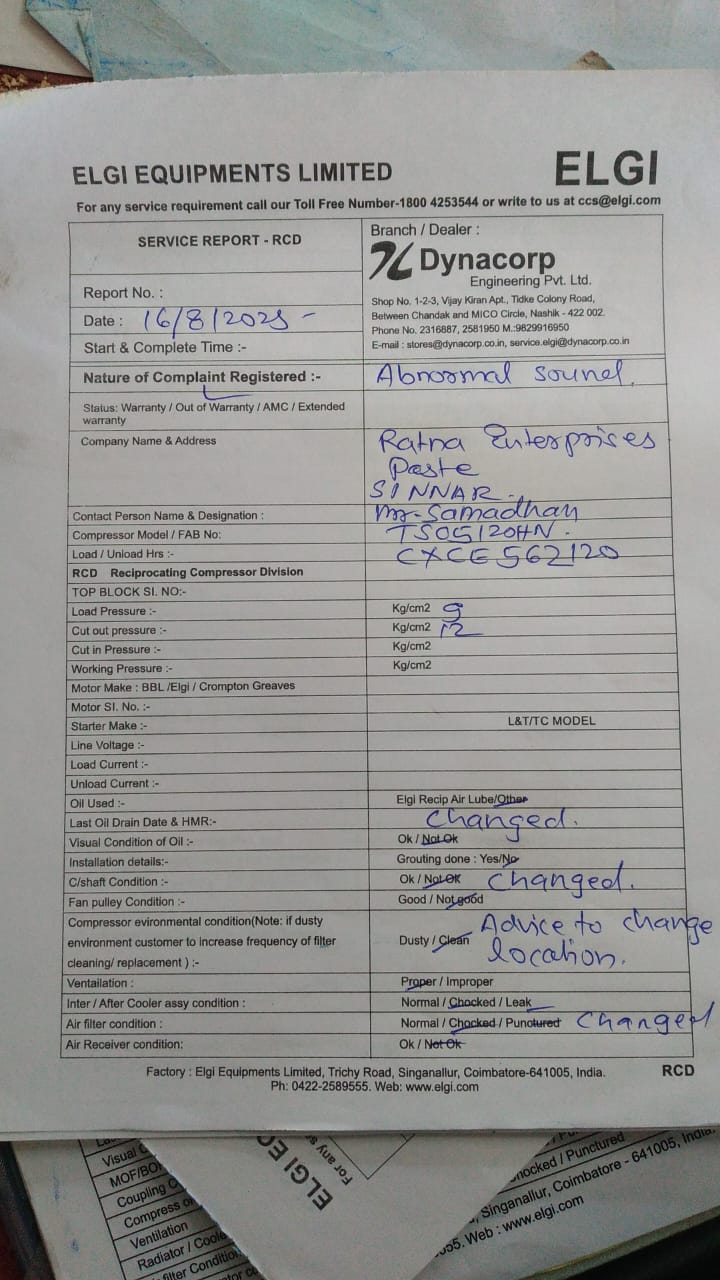 ELGI EQUIPMENTS LIMITED
ELGI
For any service requirement call our Toll Free Number-1800 4253544 or write to us at ccs@elgi.com
SERVICE REPORT - RCD
Branch / Dealer :
Dynacorp
Engineering Pvt. Ltd.
Shop No. 1-2-3, Vijay Kiran Apt., Tidke Colony Road,
Between Chandak and MICO Circle, Nashik - 422 002.
Phone No. 2316887, 2581950 M.:9829916950
E-mail : stores@dynacorp.co.in, service.elgi@dynacorp.co.in
Report No. :
Date : 16/8/2025 -
Start & Complete Time :-
Nature of Complaint Registered :- Abnormal sound.
Status: Warranty / Out of Warranty / AMC / Extended
warranty
Company Name & Address Ratna Enterprises
Paste
SINNAR.
Contact Person Name & Designation : Mr. Samadhan
Compressor Model / FAB No: TS05120HN.
Load / Unload Hrs :- CXCE562120
RCD Reciprocating Compressor Division
TOP BLOCK SI. NO:-
Load Pressure :- Kg/cm2 9
Cut out pressure :- Kg/cm2 12
Cut in Pressure :- Kg/cm2
Working Pressure :- Kg/cm2
Motor Make : BBL /Elgi / Crompton Greaves
Motor SI. No. :-
Starter Make :- L&T/TC MODEL
Line Voltage :-
Load Current :-
Unload Current :-
Oil Used :- Elgi Recip Air Lube/Other
Last Oil Drain Date & HMR:- changed.
Visual Condition of Oil :- Ok / Not Ok
Installation details:- Grouting done : Yes/No
C/shaft Condition :- Ok / Not OK changed.
Fan pulley Condition :- Good / Not good
Compressor evironmental condition(Note: if dusty
environment customer to increase frequency of filter
cleaning/ replacement ) :- Dusty / Clean Advice to change
location.
Ventailation : Proper / Improper
Inter / After Cooler assy condition : Normal / Chocked / Leak
Air filter condition : Normal / Chocked / Punctured changed
Air Receiver condition: Ok / Not Ok
Factory : Elgi Equipments Limited, Trichy Road, Singanallur, Coimbatore-641005, India.
RCD
Ph: 0422-2589555. Web: www.elgi.com
Visual
MOF/BO
Coupling
Compress
Ventilation
Radiator / Coole
filter Condition
ELGI E
For any s
hocked / Punctured
, Singanallur, Coimbatore - 641005, India.
55. Web : www.elgi.com